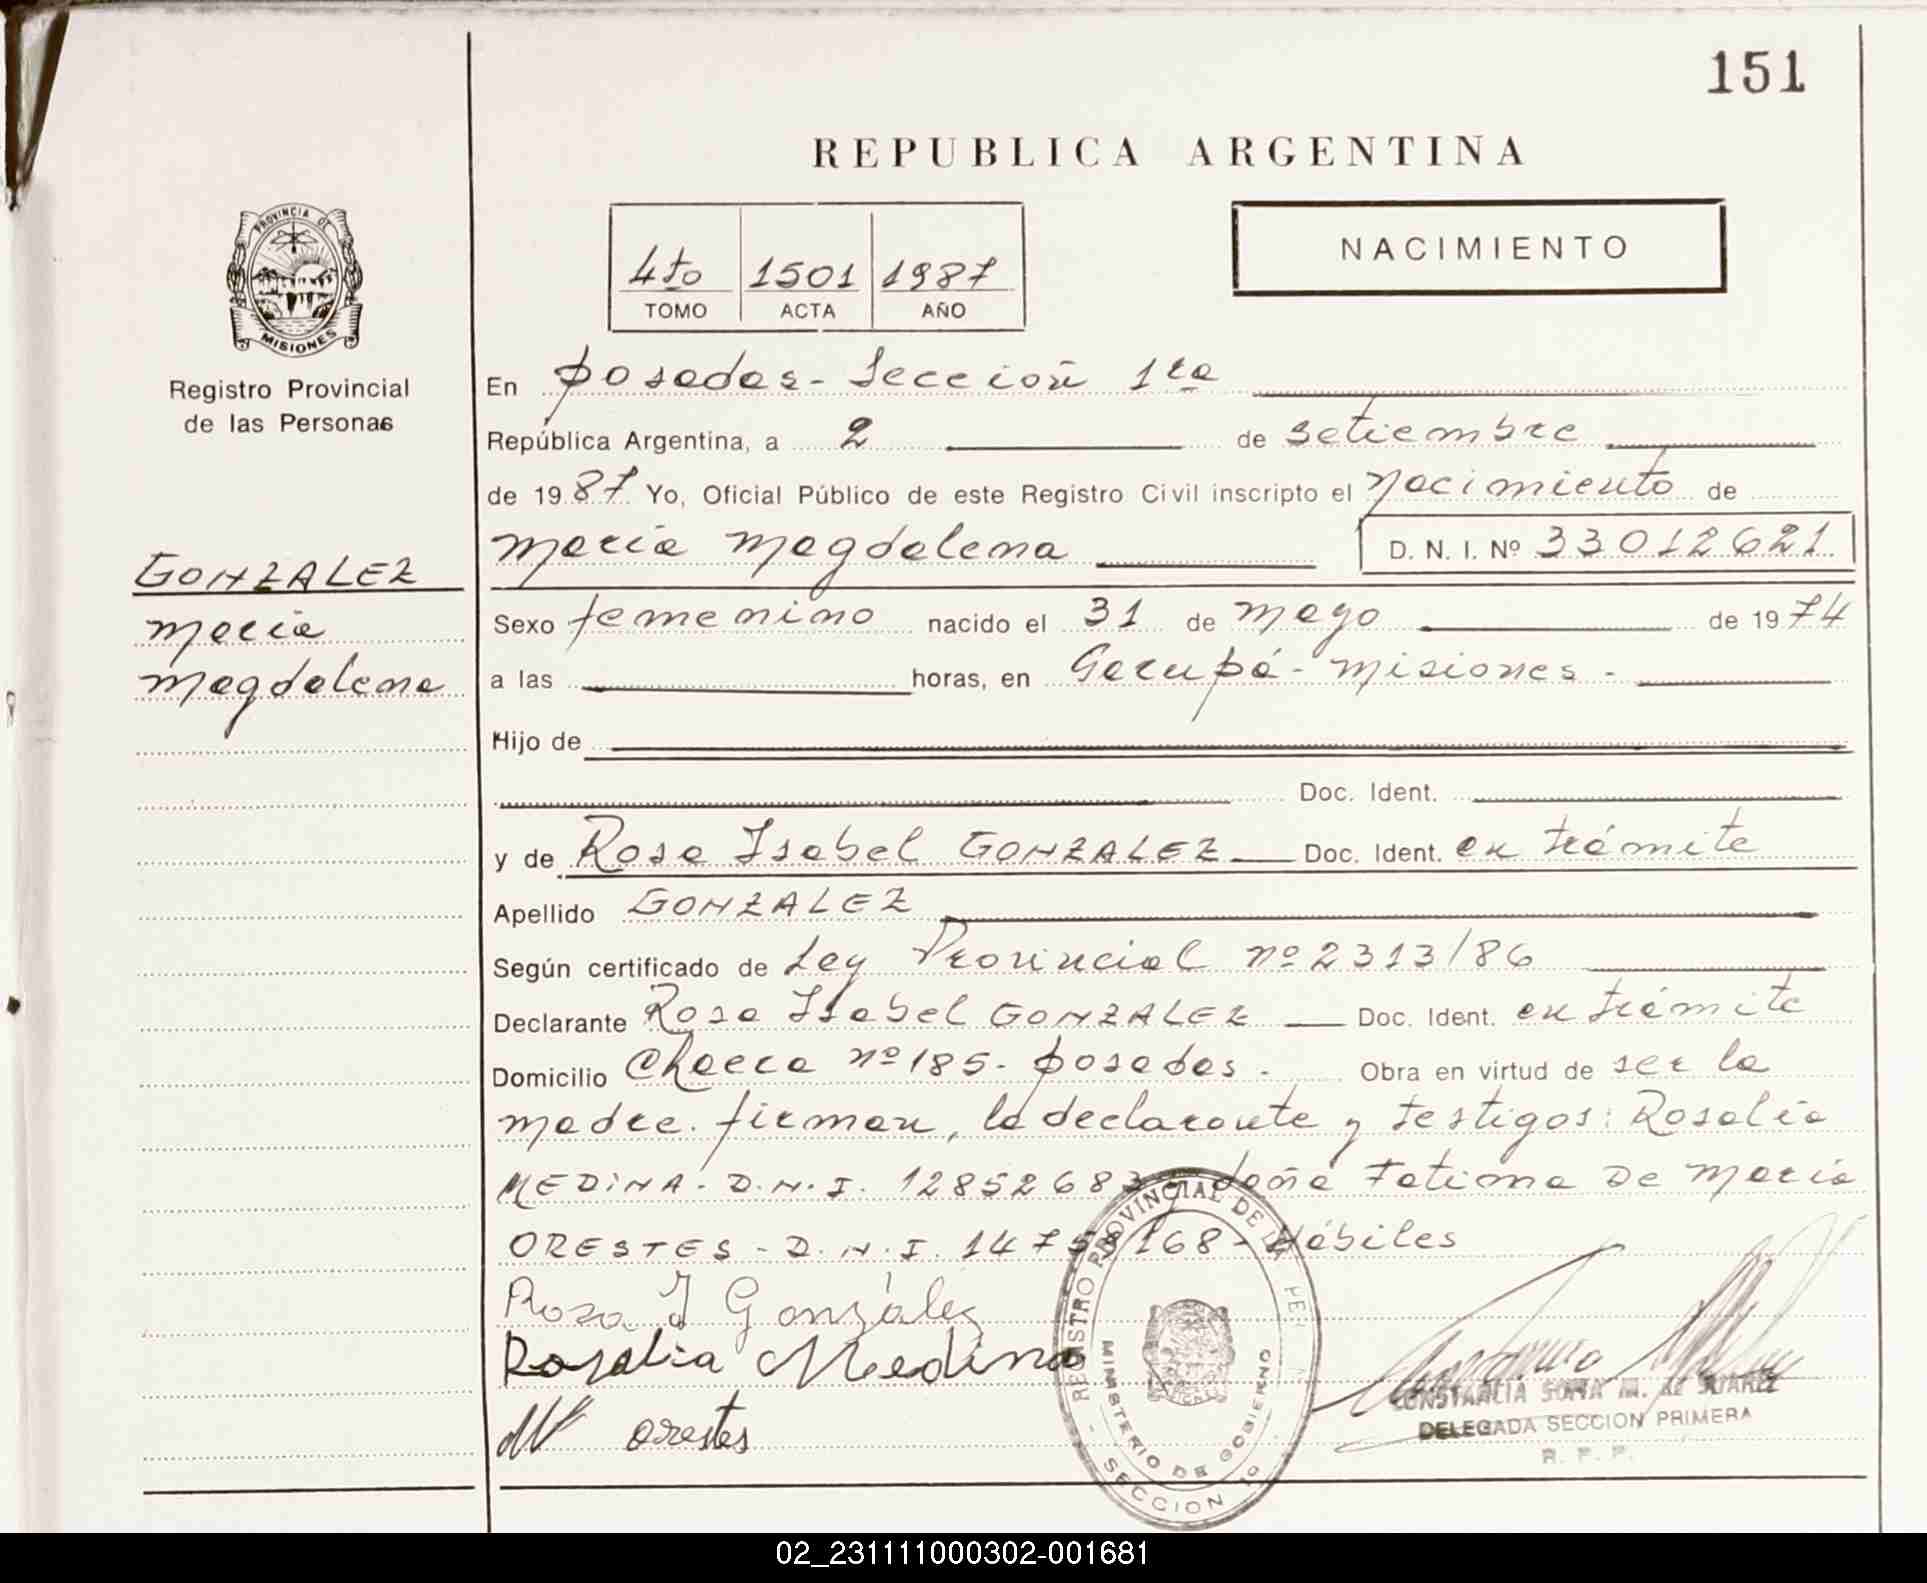 151
REPUBLICA ARGENTINA
PROVINCIA DE
MISIONES
Registro Provincial
de las Personas
4to 1501 1987
TOMO ACTA AÑO
NACIMIENTO
En Posadas - Sección 1ra
República Argentina, a 2 de setiembre
de 1987 Yo, Oficial Público de este Registro Civil inscripto el Nacimiento de
María Magdalena D. N. I. Nº 33012621
GONZALEZ
María
Magdalena
Sexo femenino nacido el 31 de Mayo de 1974
a las horas, en Garupá - Misiones -
Hijo de
Doc. Ident.
y de Rosa Isabel GONZALEZ Doc. Ident. en trámite
Apellido GONZALEZ
Según certificado de Ley Provincial nº 2313/86
Declarante Rosa Isabel GONZALEZ Doc. Ident. en trámite
Domicilio Chacra nº 185 - Posadas - Obra en virtud de ser la
madre. firman, la declarante y testigos: Rosalía
MEDINA - D.N.I. 12852683 y doña Fatima De María
ORESTES - D.N.I. 14758168 - Hábiles
Rosa I González
Rosalia Medina
orestes
REGISTRO PROVINCIAL DE LA PER
MINISTERIO DE GOBIERNO
SECCION 1º
CONSTANCIA SOFIA M. de SUAREZ
DELEGADA SECCION PRIMERA
R. P. P.
02_231111000302-001681